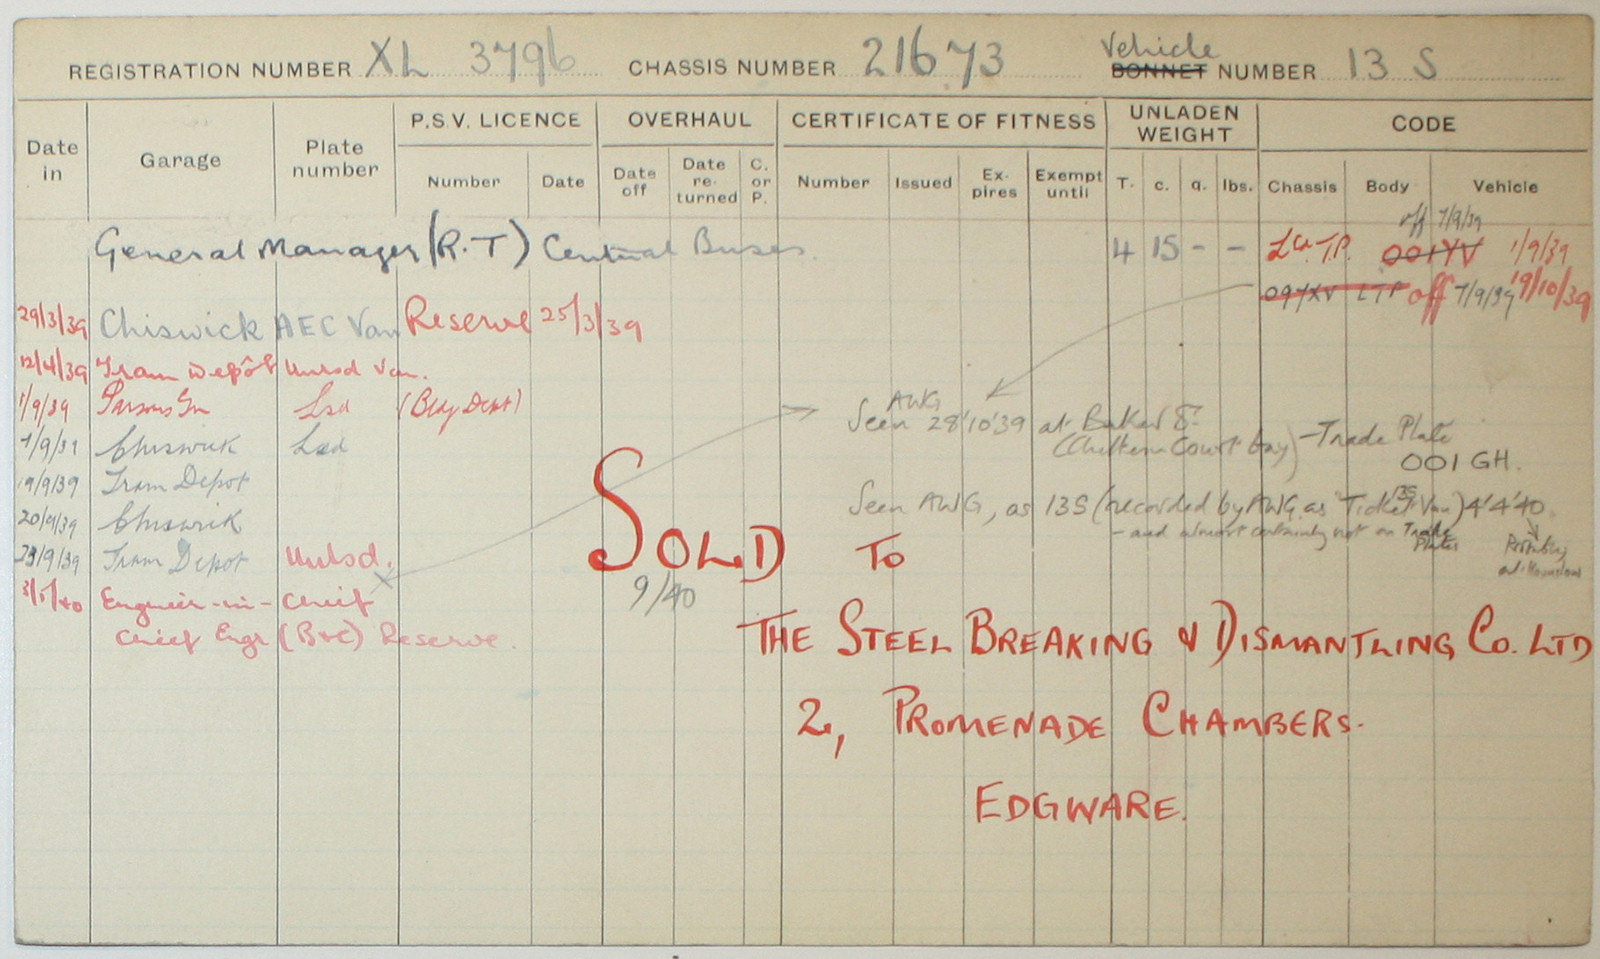 REGISTRATION NUMBER XL 3796 CHASSIS NUMBER 21673 Vehicle BONNET NUMBER 13 S
Date in Garage Plate number P.S.V. LICENCE OVERHAUL CERTIFICATE OF FITNESS UNLADEN WEIGHT CODE
Number Date Date off Date re-turned C. or P. Number Issued Ex-pires Exempt until T. c. q. lbs. Chassis Body Vehicle
off 7/9/39
General Manager (R.T) Central Buses. 4 15 - - T.P. 001YV 1/9/39
LTP off 7/9/39 19/10/39
29/3/39 Chiswick AEC Van Reserve 25/3/39
12/4/39 Tram Depôt Unlsd Van.
1/9/39 Parsons Gn Lsd (Bdy Dept)
AWG
Seen 28'10'39 at Baker St
(Chiltern Court bay) - Trade Plate
001 GH.
7/9/39 Chiswick Lsd
19/9/39 Tram Depot
Seen AWG, as 13S (recorded by AWG as 'Ticket Van') 4'4'40
13S
- and almost certainly not on Trade Plates
Probably at Hounslow
20/9/39 Chiswick
23/9/39 Tram Depot Unlsd.
SOLD TO
9/40
3/5/40 Engineer-in-Chief
Chief Engr (B+C) Reserve.
THE STEEL BREAKING & DISMANTLING CO. LTD
2, PROMENADE CHAMBERS.
EDGWARE.